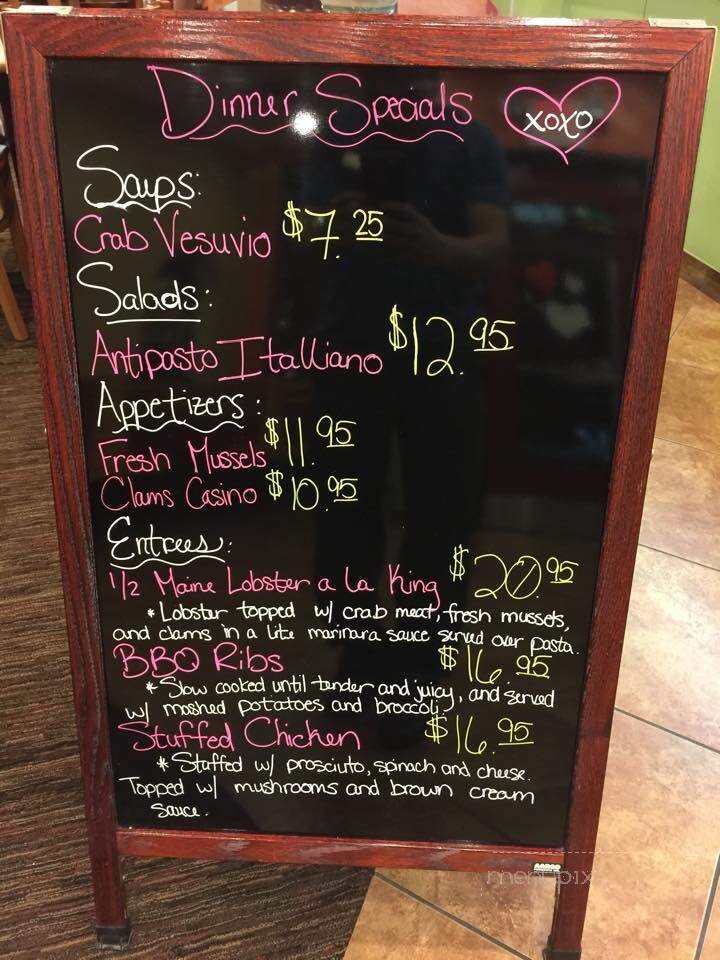 Dinner Specials xoxo
Soups:
Crab Vesuvio $7.25
Salads:
Antipasto Italliano $12.95
Appetizers:
Fresh Mussels $11.95
Clams Casino $10.95
Entrees:
1/2 Maine Lobster a la King $20.95
* Lobster topped w/ crab meat, fresh mussels,
and clams in a lite marinara sauce served over pasta.
BBQ Ribs $16.95
* Slow cooked until tender and juicy, and served
w/ mashed potatoes and broccoli.
Stuffed Chicken $16.95
* Stuffed w/ prosciuto, spinach and cheese.
Topped w/ mushrooms and brown cream
sauce.
AARCO
menupix